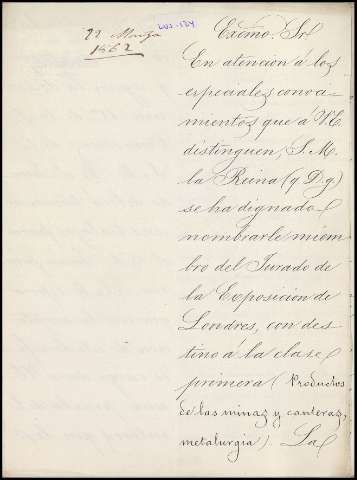 22 Marzo
1862
Excmo. Sr.
En atencion á los
especiales conoci-
mientos que á V.E.
distinguen, S. M.
la Reina (q D. g)
se ha dignado
nombrarle miem
bro del Jurado de
la Exposicion de
Londres, con des
tino á la clase
primera (Productos
de las minas y canteras,
metalurgia). La